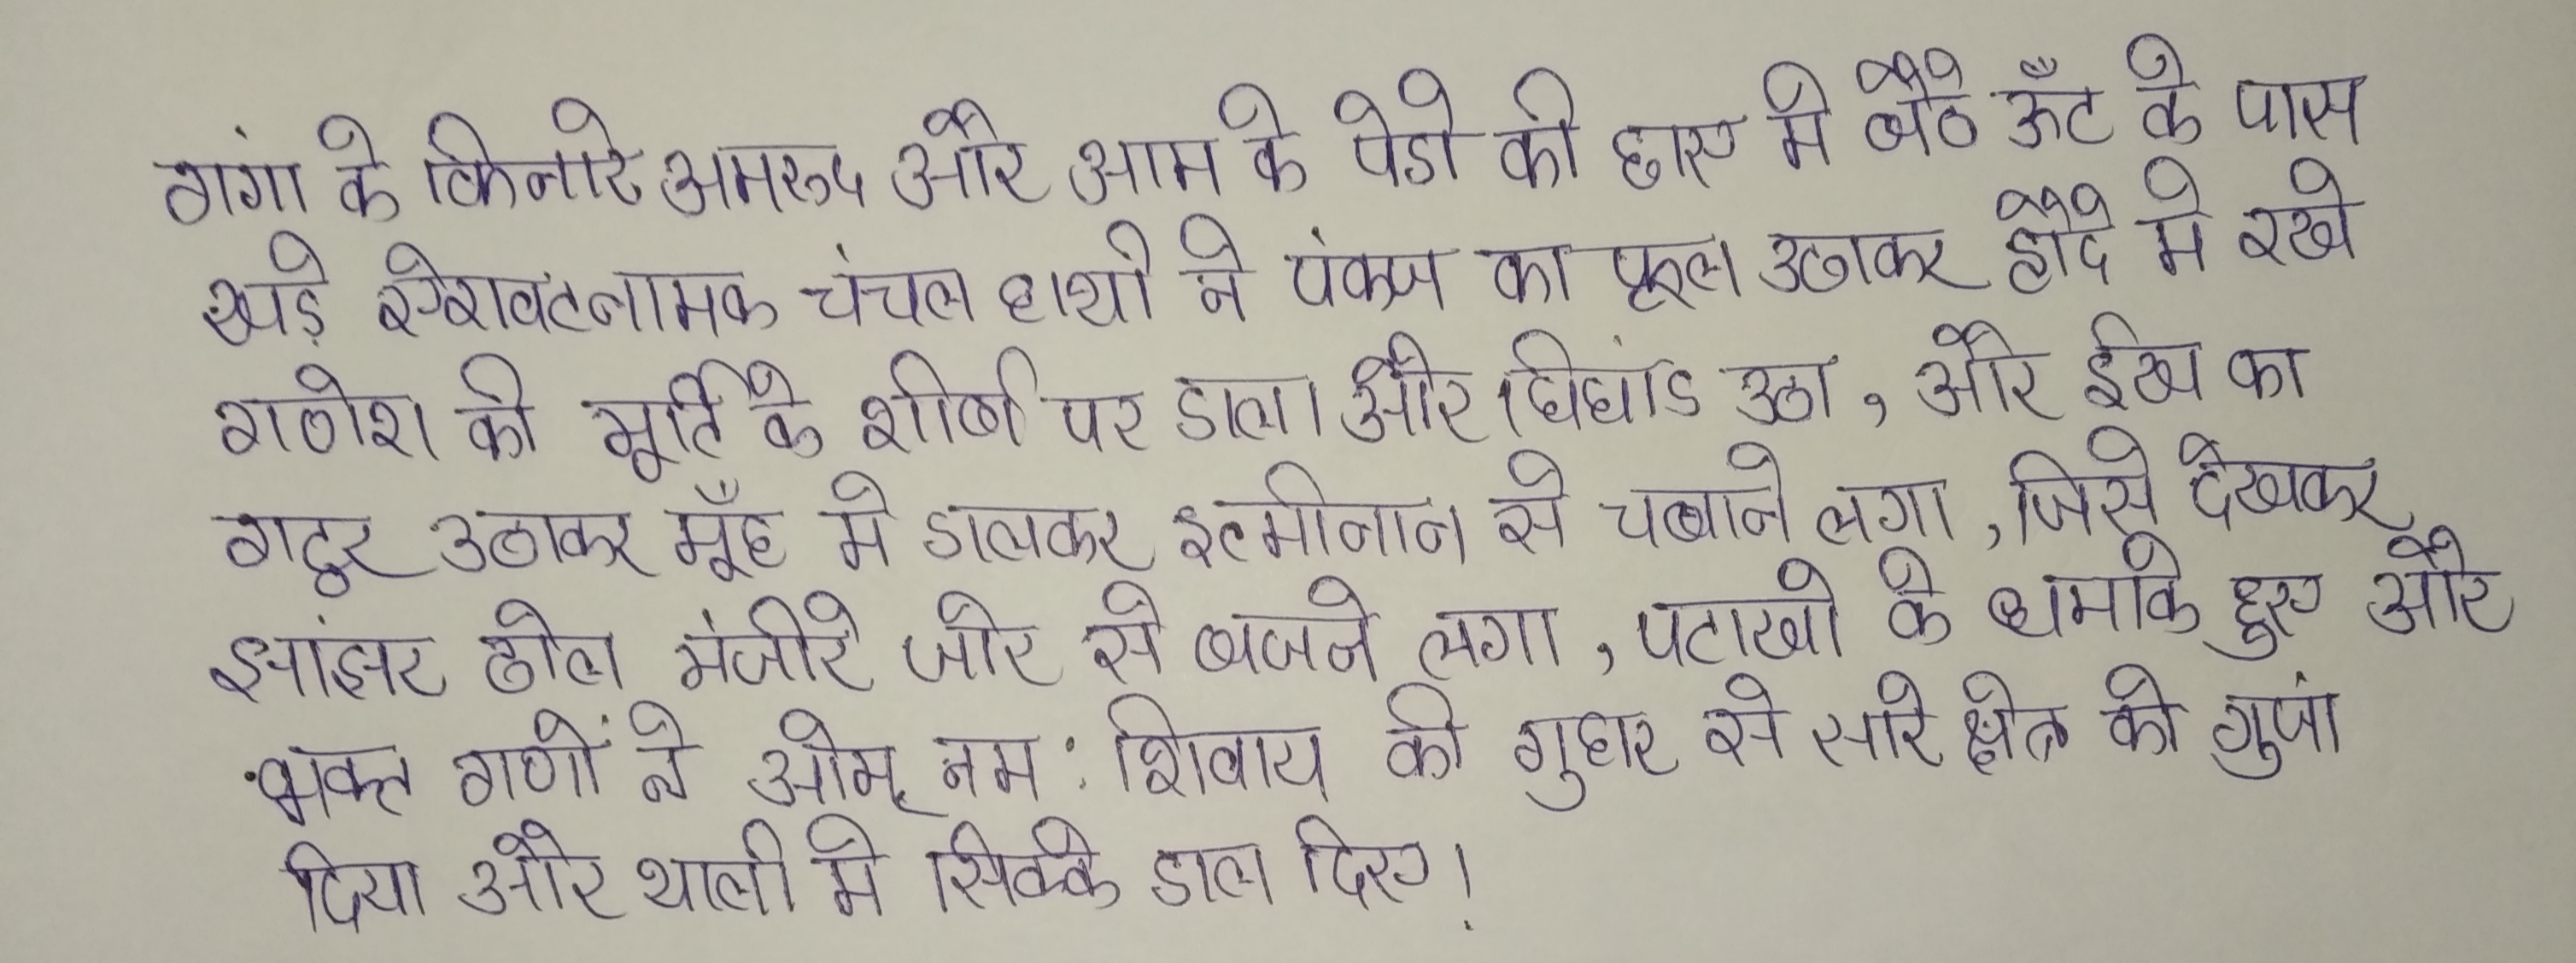 गंगा के किनारे अमरुद और आम के पेडो की छाए मे बैठे ऊँट के पास
खड़े ऐरावटनामक चंचल हाथी ने पंकज का फूल उठाकर हौदे मे रखे
गणेश की मूर्ति के शीर्ष पर डाला और घिघांड उठा, और ईख का
गट्ठर उठाकर मूँह मे डालकर इत्मीनान से चबाने लगा, जिसे देखकर
झांझर ढोल मंजीरे जोर से बजने लगा, पटाखो के धमाके हुए और
भक्त गणों ने ओम् नम: शिवाय की गुहार से सारे क्षेत्र को गुजां
दिया और थाली मे सिक्के डाल दिए!